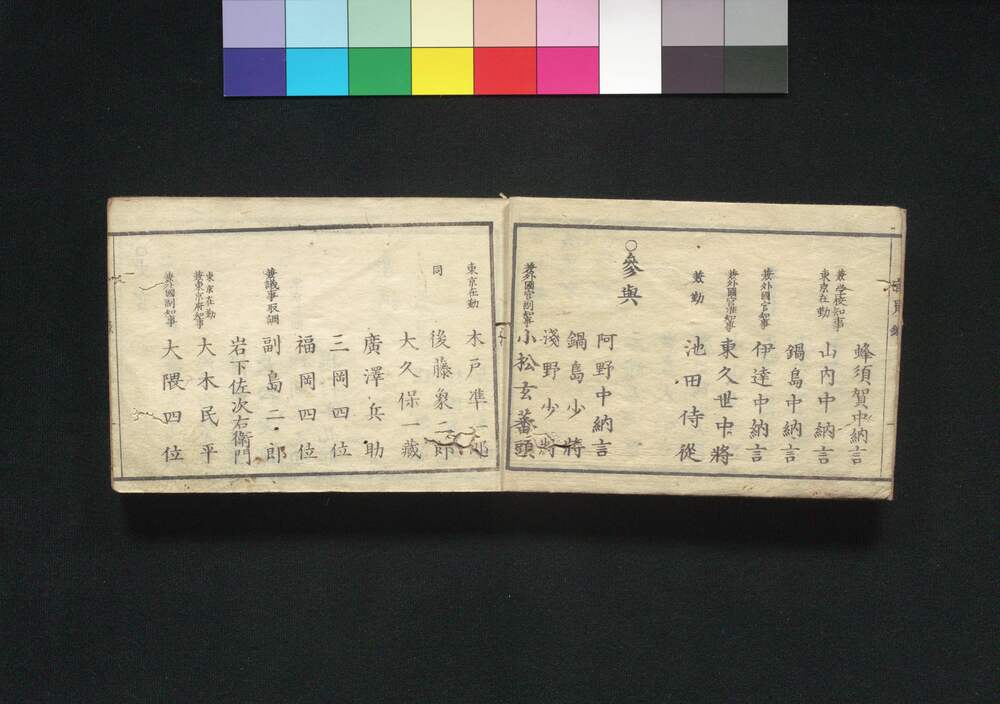 蜂須賀中納言
兼学校知事
東京在勤
山内中納言
鍋島中納言
兼外國官知事
伊達中納言
兼外國官准知事
東久世中將
兼勤
池田侍從
○參與
阿野中納言
鍋島少將
淺野少將
兼外國官副知事
小松玄蕃頭
東京在勤
木戸準一郎
同
後藤象二郎
大久保一藏
廣澤兵助
三岡四位
福岡四位
兼議事取調
副島二郎
岩下佐次右衛門
東京在勤
兼東京府知事
大木民平
兼外國副知事
大隈四位